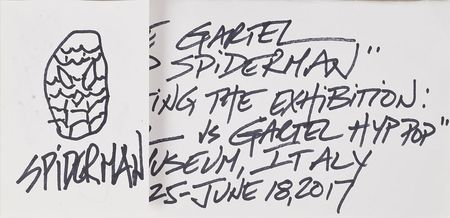 SPIDERMAN
E GARTEL
SPIDERMAN"
TING THE EXHIBITION:
VS GARTEL HYP POP"
USEUM, ITALY
25-JUNE 18, 2017